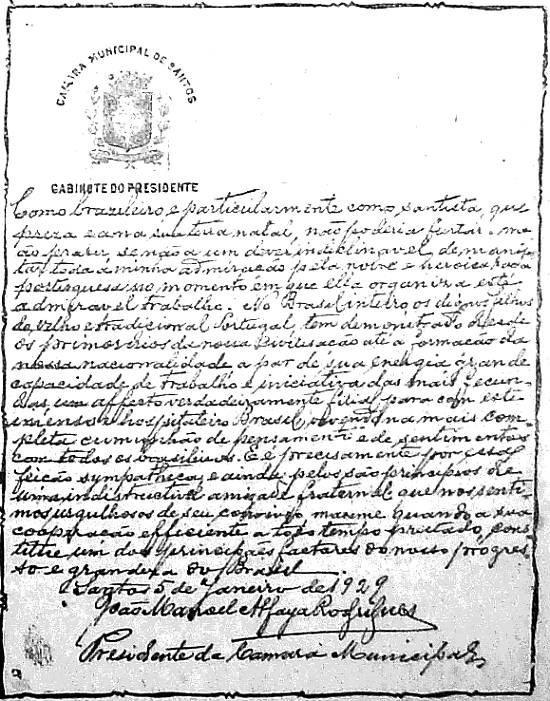 CAMARA MUNICIPAL DE SANTOS
GABINETE DO PRESIDENTE
Como brazileiro, e particularmente como santista, que
preza e ama sua terra natal, não poderia furtar-me
ao prazer, se não a um dever indeclinavel, de manifes
tar toda a minha admiração pela nobre e heroica raça
portuguesa no momento em que ella organiza este
admiravel trabalho. No Brasil inteiro os dignos filhos
do velho e tradicional Portugal, tem demonstrado desde
os primordios da nova civilisação até a formação da
nossa nacionalidade a par de sua energia grande
capacidade de trabalho e iniciativa das mais fecun
das, um affecto verdadeiramente filial para com este
immenso e hospitaleiro Brasil, na mais com
pleta communhão de pensamento e de sentimentos
com todos os brasileiros. E é precisamente por essa
feição sympathica, e ainda pelos são principios de
uma indistructivel amizade fraternal que nos senti
mos orgulhosos de seu convivio maxime quando a sua
cooperação efficiente a todo tempo prestada, cons
titue um dos principaes factores do nosso progres
so e grandeza do Brasil.
Santos 5 de Janeiro de 1929
João Manoel Alfaya Rodrigues
Presidente da Camara Municipal